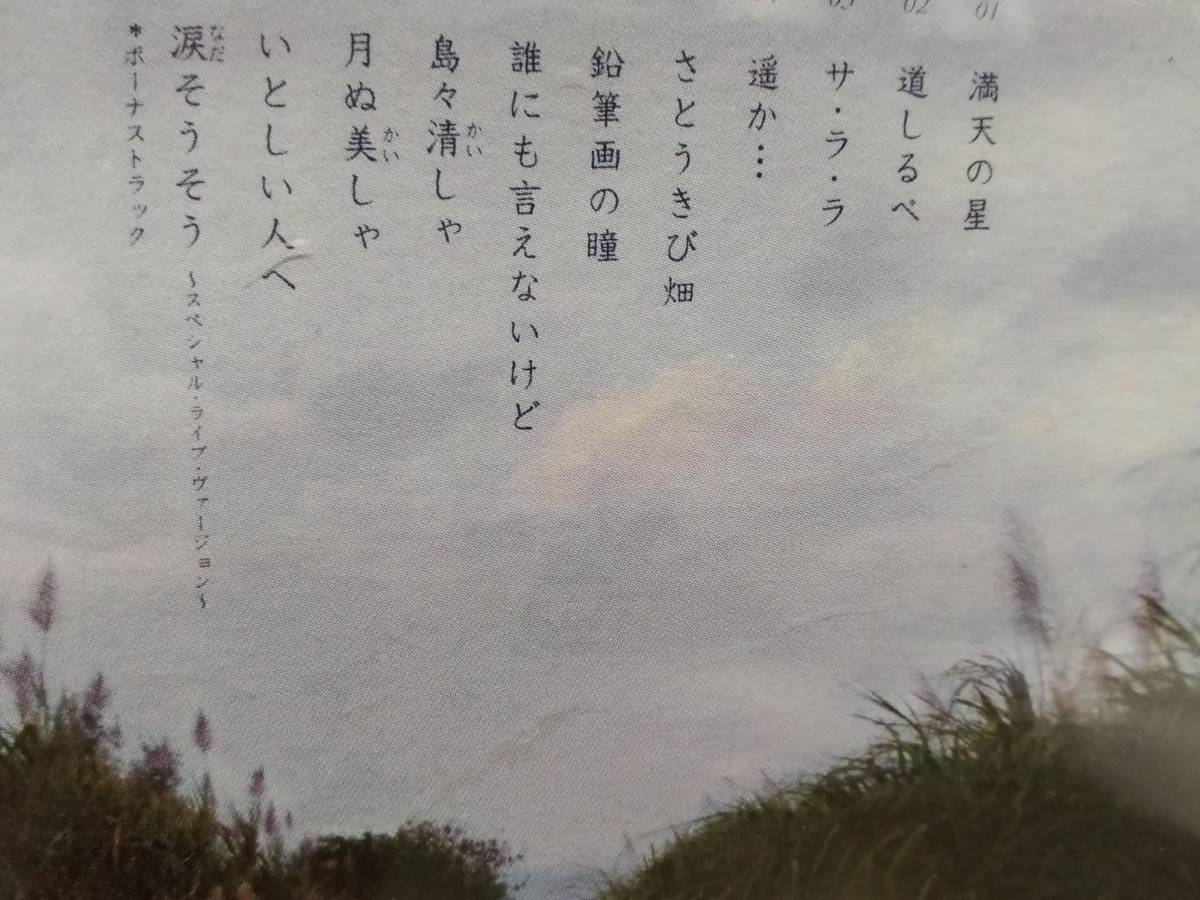 01
満天の星
02
道しるべ
03
サ・ラ・ラ
遥か…
さとうきび畑
鉛筆画の瞳
誰にも言えないけど
島々清しゃ
かい
月ぬ美しゃ
かい
いとしい人へ
涙そうそう ～スペシャル・ライブ・ヴァージョン～
なだ
*ボーナストラック